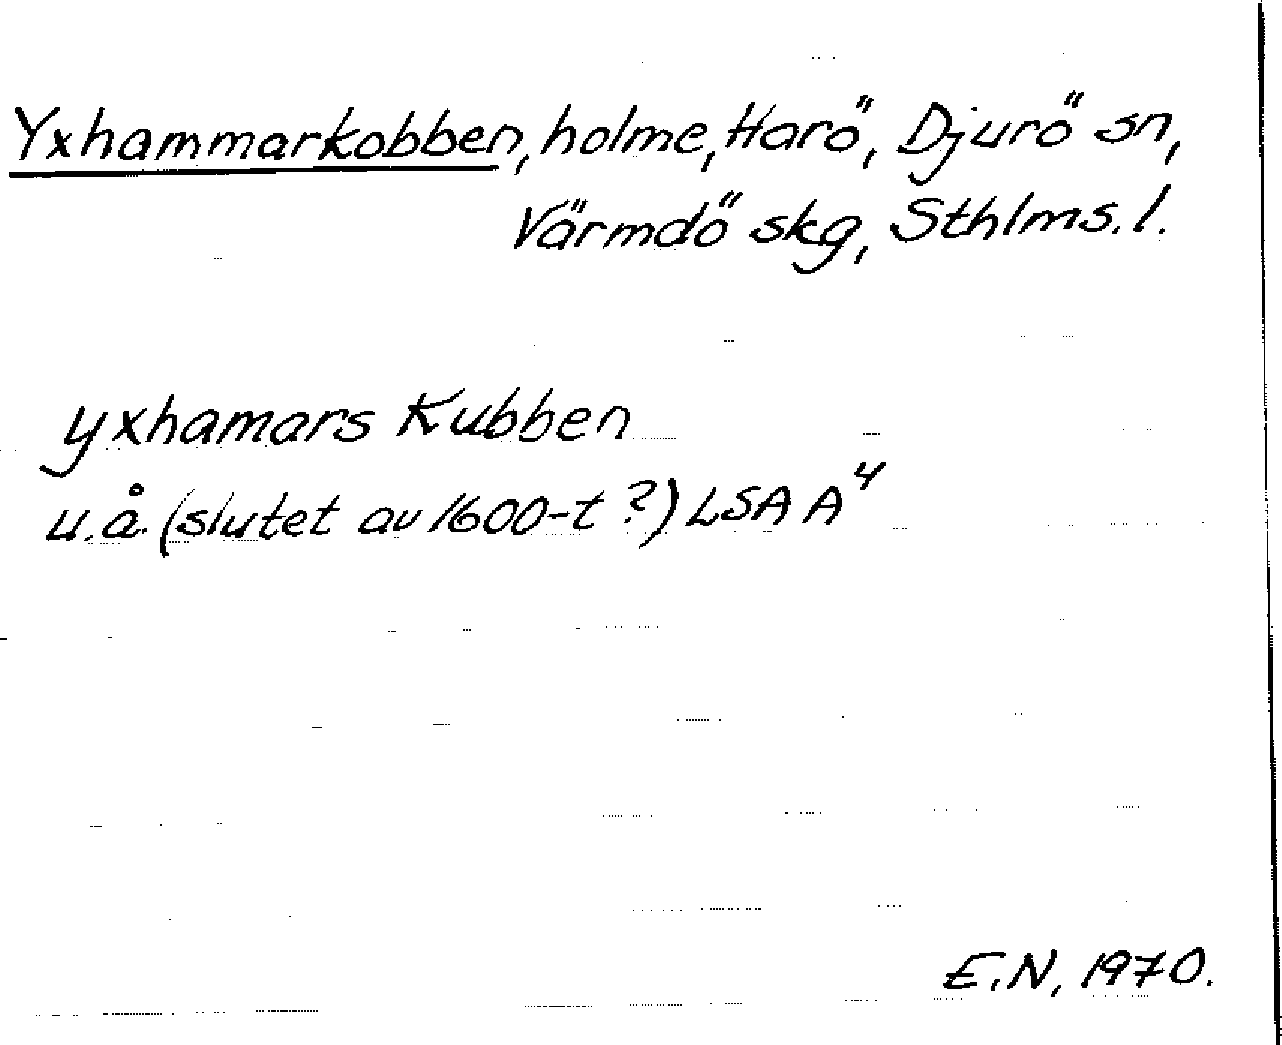 Yxhammarkobben, holme, Harö, Djurö sn,
Värmdö skg, Sthlms. l.
yxhamars Kubben
u.å. (slutet av 1600-t ?) LSA A⁴
E.N, 1970.